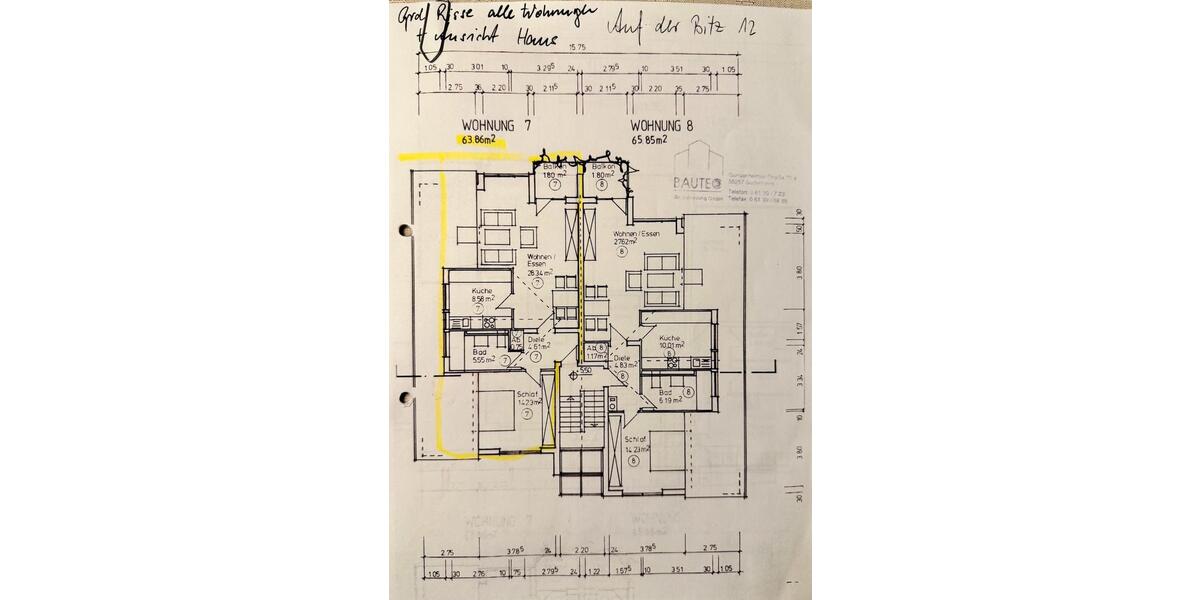 Risse alle Wohnungen Auf der Bitz 12
+ Ansicht Haus
15.75
1.05 30 3.01 10 3.29⁵ 24 2.79⁵ 10 3.51 30 1.05
2.75 36 2.20 30 2.11⁵ 30 2.11⁵ 30 2.20 35 2.75
WOHNUNG 7 WOHNUNG 8
63.86m² 65.85m²
BAUTEC
Balkon Balkon
1.80 m² 1.80m²
7 8
Wohnen / Essen
27.62m²
8
Wohnen /
Essen
26.34 m²
7
Küche
8.58 m²
7
Küche
10.01 m²
8
Ab
0.75
7
Diele
4.61m²
7
Bad
5.55 m²
7
Ab 8
1.17m²
Diele
4.83 m²
8
5.50
Schlaf
14.23m²
7
Bad
6.19 m²
8
Schlaf
14.23 m²
8
30
50
3.80
1.57
24
3.34
10
3.80
30
2.75 3.78⁵ 24 2.20 24 3.78⁵ 2.75
1.05 30 2.76 10 75 2.79⁵ 24 1.22 1.57⁵ 10 3.51 30 1.05